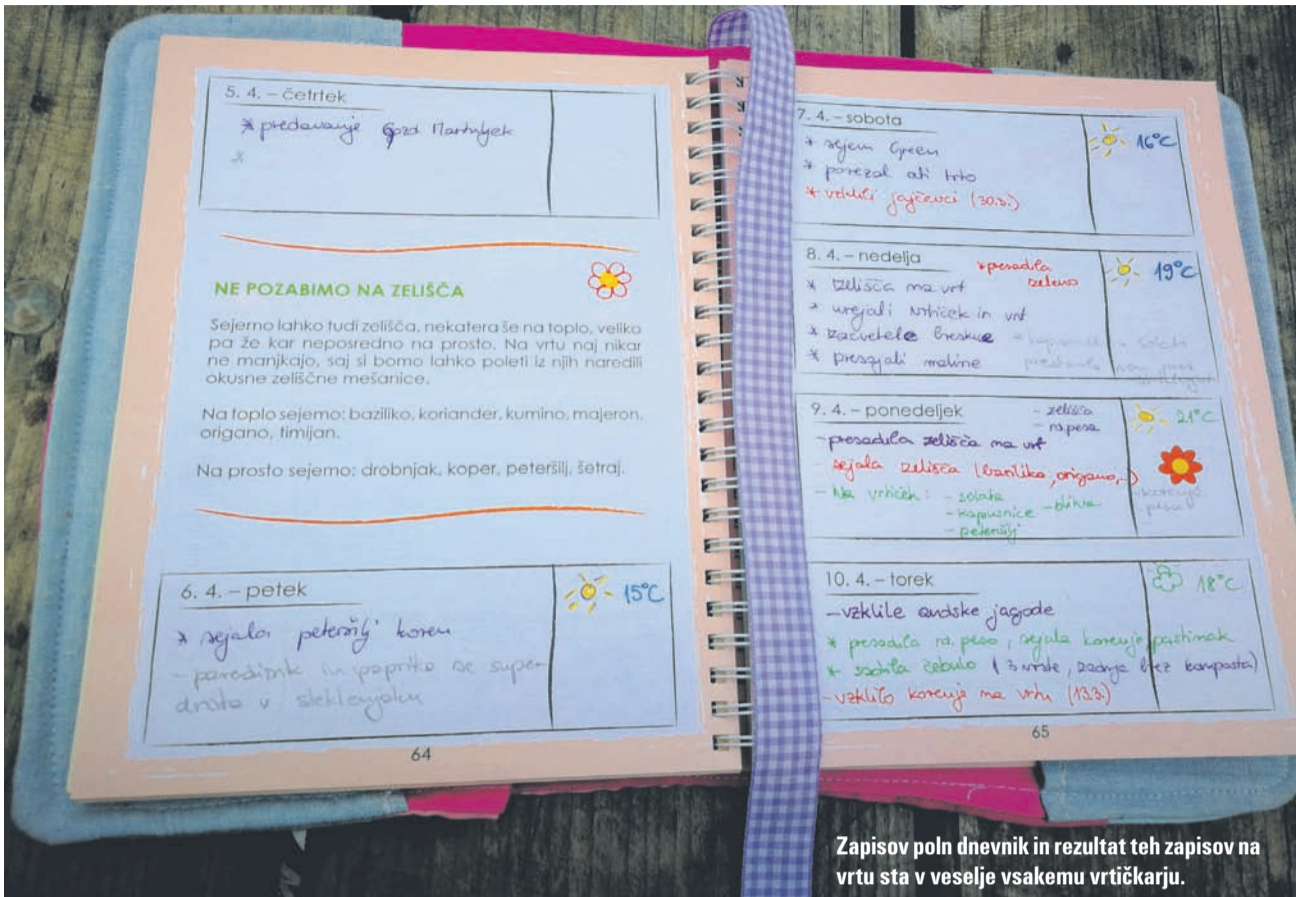 5. 4. – četrtek
* predavanje Gozd Martuljek
*
NE POZABIMO NA ZELIŠČA
Sejemo lahko tudi zelišča, nekatera še na toplo, veliko
pa že kar neposredno na prosto. Na vrtu naj nikar
ne manjkajo, saj si bomo lahko poleti iz njih naredili
okusne zeliščne mešanice.
Na toplo sejemo: baziliko, koriander, kumino, majeron,
origano, timijan.
Na prosto sejemo: drobnjak, koper, peteršilj, šetraj.
6. 4. – petek
15°C
* sejala peteršilj koren
- paradižnik in papriko se super
držita v steklenjaku
64
7. 4. – sobota
16°C
* sejem Green
* porezal ati trto
* vzklili jajčevci (30.3.)
8. 4. – nedelja
* presadila
zeleno
19°C
* zelišča na vrt
* urejali vrtiček in vrt
* zacvetele breskve
* presajali maline
9. 4. – ponedeljek
- zelišča
- rd. pesa
21°C
- presadila zelišča na vrt
- sejala zelišča (bazilika, origano,..)
- Na vrtiček: - solata
- kapusnice - blitva
- peteršilj
- korenje
10. 4. – torek
18°C
- vzklile andske jagode
* presadila rd. peso, sejala korenje, pastinak
* sadila čebulo (3 vrste, zadnja brez komposta)
- vzklilo korenje na vrtu (13.3.)
65
Zapisov poln dnevnik in rezultat teh zapisov na
vrtu sta v veselje vsakemu vrtičkarju.